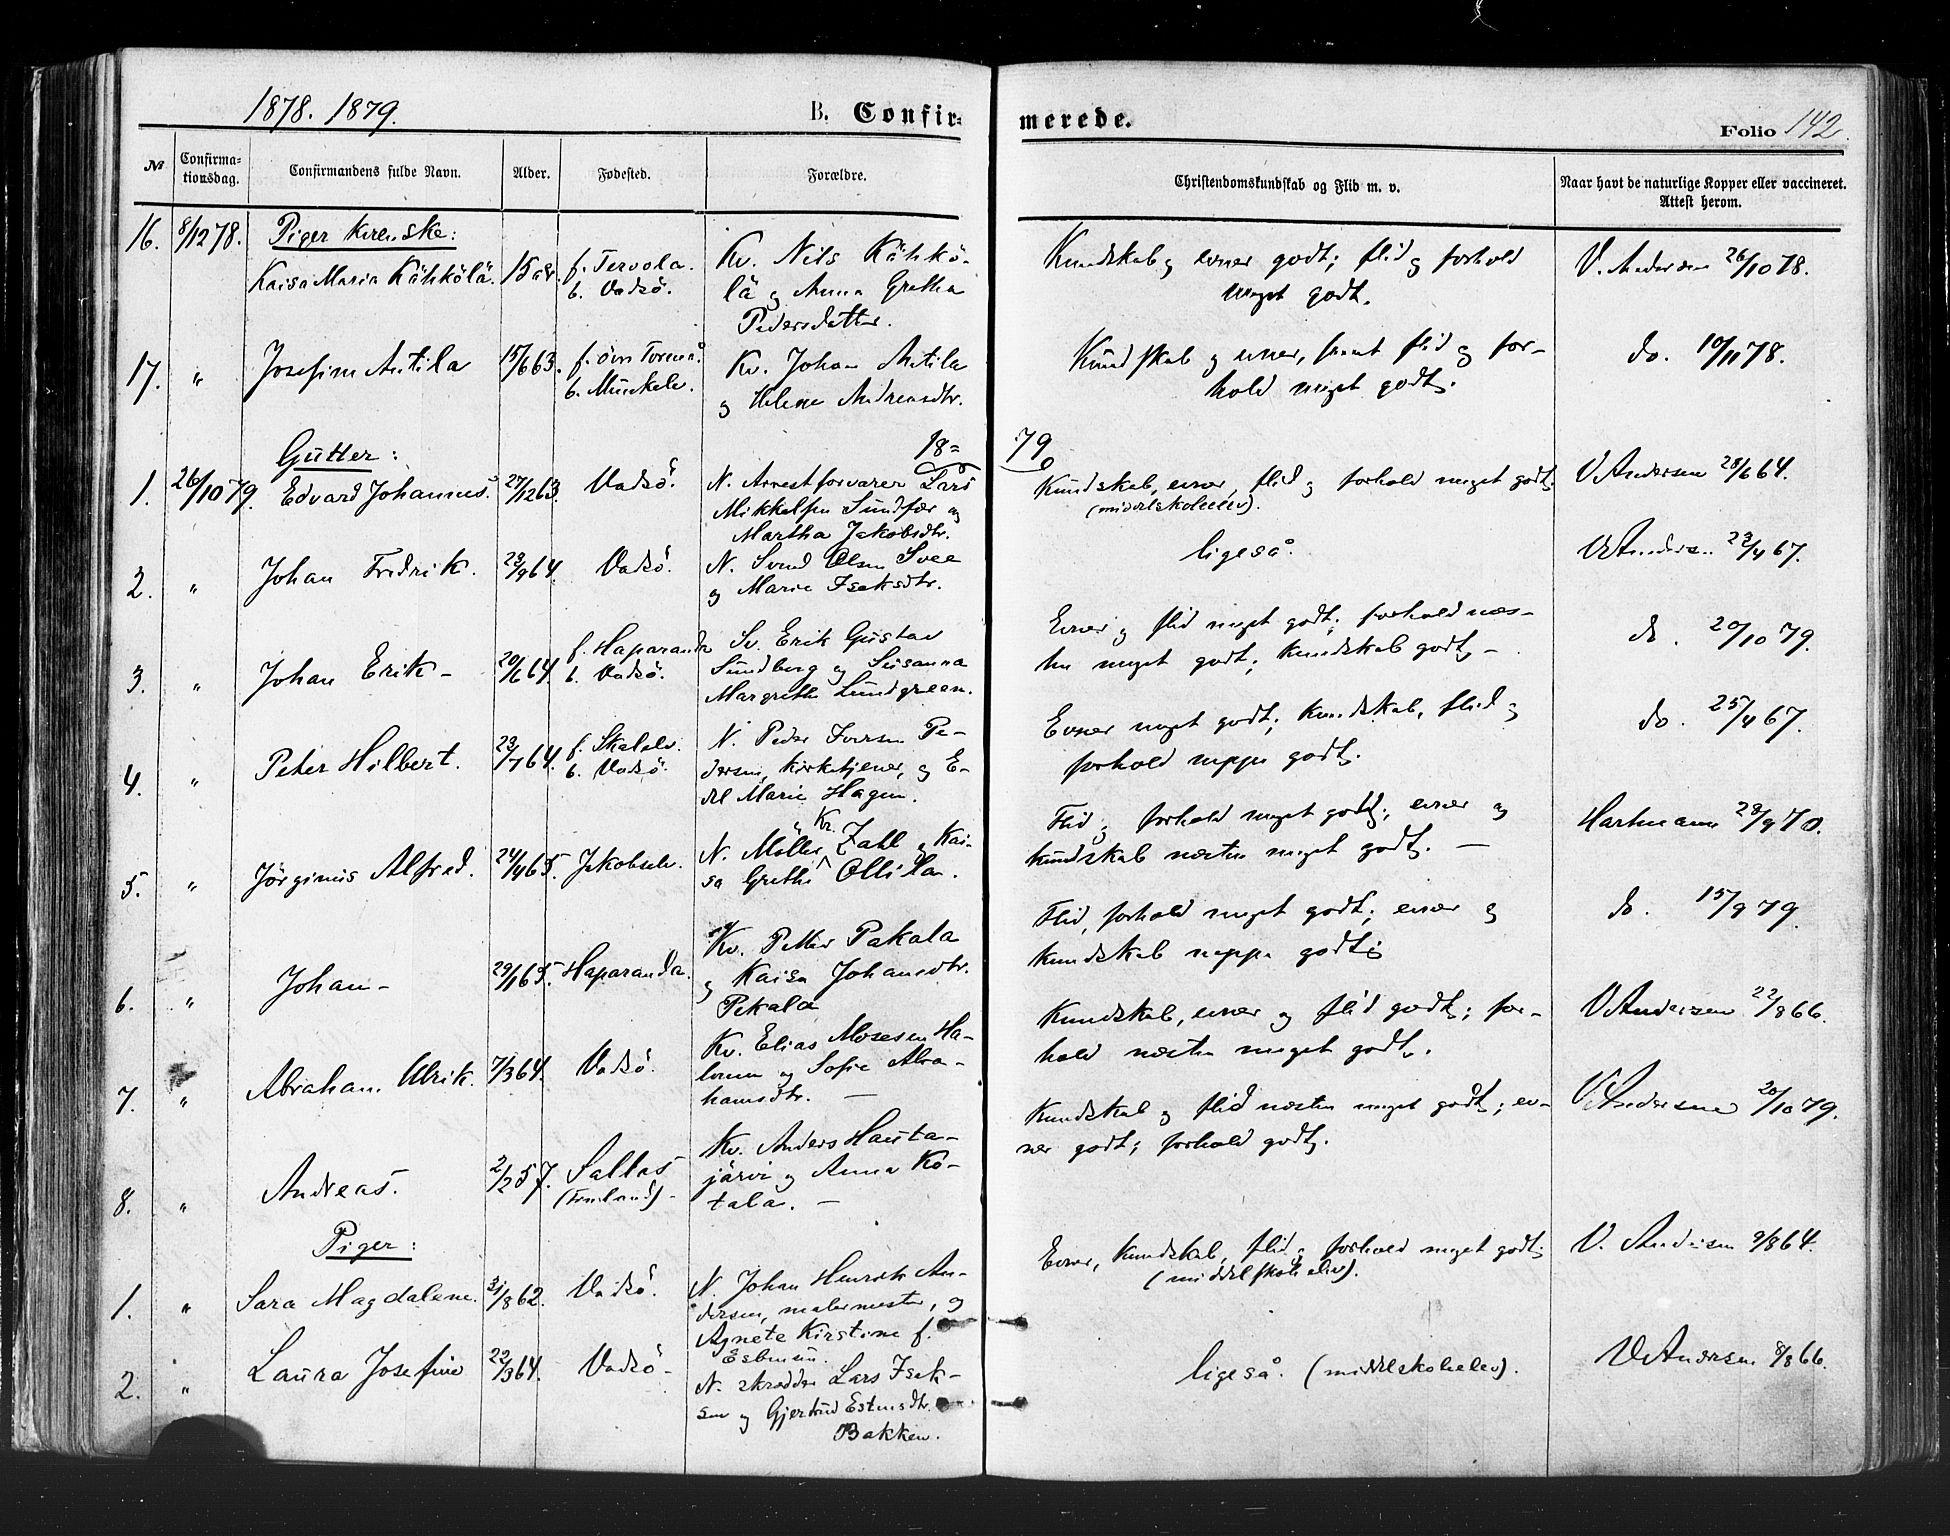 1878. 1879.
B. Confirmerede.
Folio 142.
№ Confirmationsdag. Confirmandens fulde Navn. Alder. Fødested. Forældre. Christendomskundskab og Flid m. v. Naar havt de naturlige Kopper eller vaccineret. Attest herom.
Piger kvenske:
16. 8/12 78. Kaisa Maria Kähkölä. 15 år. f. Tervola. b. Vadsö. Kv. Nils Kähkö-
lä og Anna Gretha
Pedersdatter.
Kundskab og evner godt; flid og forhold
meget godt.
V. Andersen 26/10 78.
17. " Josefine Antila 15/6 63. f. öv. Torneå. b. Munkelv. Kv. Johan Antila
og Helene Andreasdtr.
Kundskab og evner, samt flid og for-
hold meget godt.
do. 10/11 78.
18=79
Gutter:
1. 26/10 79. Edvard Johannes. 27/12 63. Vadsö. N. Arrestforvarer Lars
Mikkelsen Sundfær og
Martha Jakobsdtr.
Kundskab, evner, flid og forhold meget godt.
(middelskoleelev).
V Andersen 28/6 64.
2. " Johan Fredrik. 23/9 64. Vadsö. N. Svend Olsen Svee
og Marie Isaksdtr.
ligeså.
V Andersen 23/4 67.
3. " Johan Erik - 20/6 64. f. Haparanda b. Vadsö. Sv. Erik Gustav
Sundberg og Susanna
Margrethe Lundgreen.
Evner og flid meget godt; forhold næs-
ten meget godt; kundskab godt. -
do. 20/10 79.
4. " Peter Hilbert. 23/7 64. f. Skalelv. b. Vadsö. N. Peder Iversen Pe-
dersen, kirketjener, og E-
del Marie Hagen.
Evner meget godt; kundskab, flid og
forhold neppe godt.
do. 25/4 67.
5. " Jörginus Alfred. 24/4 65. Jakobselv. N. Möller Kr. Zahl og Kai-
sa Grethe Ollila.
Flid og forhold meget godt; evner og
kundskab næsten meget godt. -
Hartmann 28/9 70.
6. " Johan - 29/1 65. Haparanda. Kv. Petter Pakala
og Kaisa Johansdtr.
Pekala
Flid, forhold meget godt; evner og
kundskab neppe godt.
do. 15/9 79.
7. " Abraham Ulrik. 7/3 64. Vadsö. Kv. Elias Mosesen Ha-
og Sofie Abra-
hamsdtr. -
Kundskab, evner og flid godt; for-
hold næsten meget godt.
V Andersen 22/8 66.
8. " Andreas. 2/2 57. Sallas (Finland) - Kv. Anders Hauta-
järvi og Anna Ko-
tala. -
Kundskab og flid næsten meget godt; ev-
ner godt; forhold godt.
V Andersen 20/10 79.
Piger:
1. " Sara Magdalene. 31/8 62. Vadsö. N. Johan Henrik An-
dersen, malermester, og
Agnete Kirstine f.
Esbensen.
Evner, kundskab, flid og forhold meget godt.
(middelskoleelev).
V. Andersen 9/8 64.
2. " Laura Josefine 22/3 64. Vadsö - N. skrædder Lars Isak-
sen og Gjertrud Estensdtr.
Bakken.
ligeså. (middelskoleelev).
V Andersen 8/8 66.